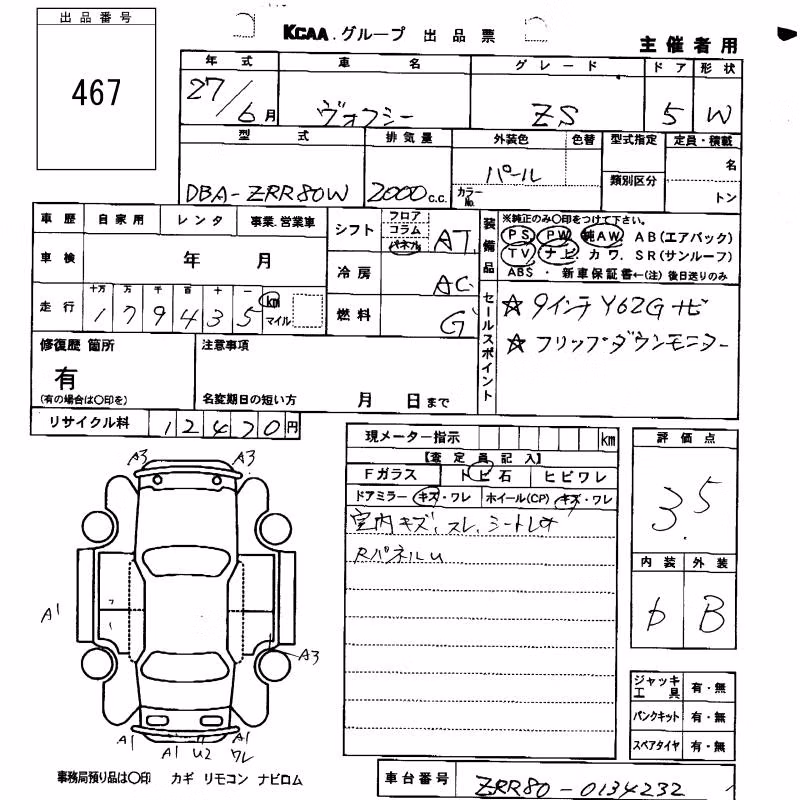 出品番号
467
KCAA.グループ 出品票
主催者用
年式 車名 グレード ドア 形状
27/6月 ヴォクシー ZS 5 W
型式 排気量 外装色 色替 型式指定 定員・積載
DBA-ZRR80W 2000c.c. パール カラーNo. 類別区分 名
トン
車歴 自家用 レンタ 事業.営業車
シフト フロア コラム パネル AT
装備品
※純正のみ〇印をつけて下さい。
PS PW 純AW AB(エアバック)
TV ナビ カワ SR(サンルーフ)
ABS・新車保証書←(注)後日送りのみ
車検 年 月
冷房 AC
走行 十万 万 千 百 十 一
179435 km マイル
燃料 G
セールスポイント
☆ 9インチ Y62Gナビ
☆ フリップダウンモニター
修復歴 箇所
有
(有の場合は〇印を)
注意事項
名変期日の短い方 月 日まで
リサイクル料 12470円
現メーター指示 km
【査定員記入】
Fガラス トビ石 ヒビワレ
ドアミラー キズ・ワレ ホイール(CP) キズ・ワレ
室内キズ、スレ、シート
RパネルU
評価点
3.5
内装 外装
B
A3 A3
A1
A3
A1 A1 U2 A1
ワレ
ジャッキ工具 有・無
パンクキット 有・無
スペアタイヤ 有・無
事務局預り品は〇印 カギ リモコン ナビロム
車台番号 ZRR80-0134232